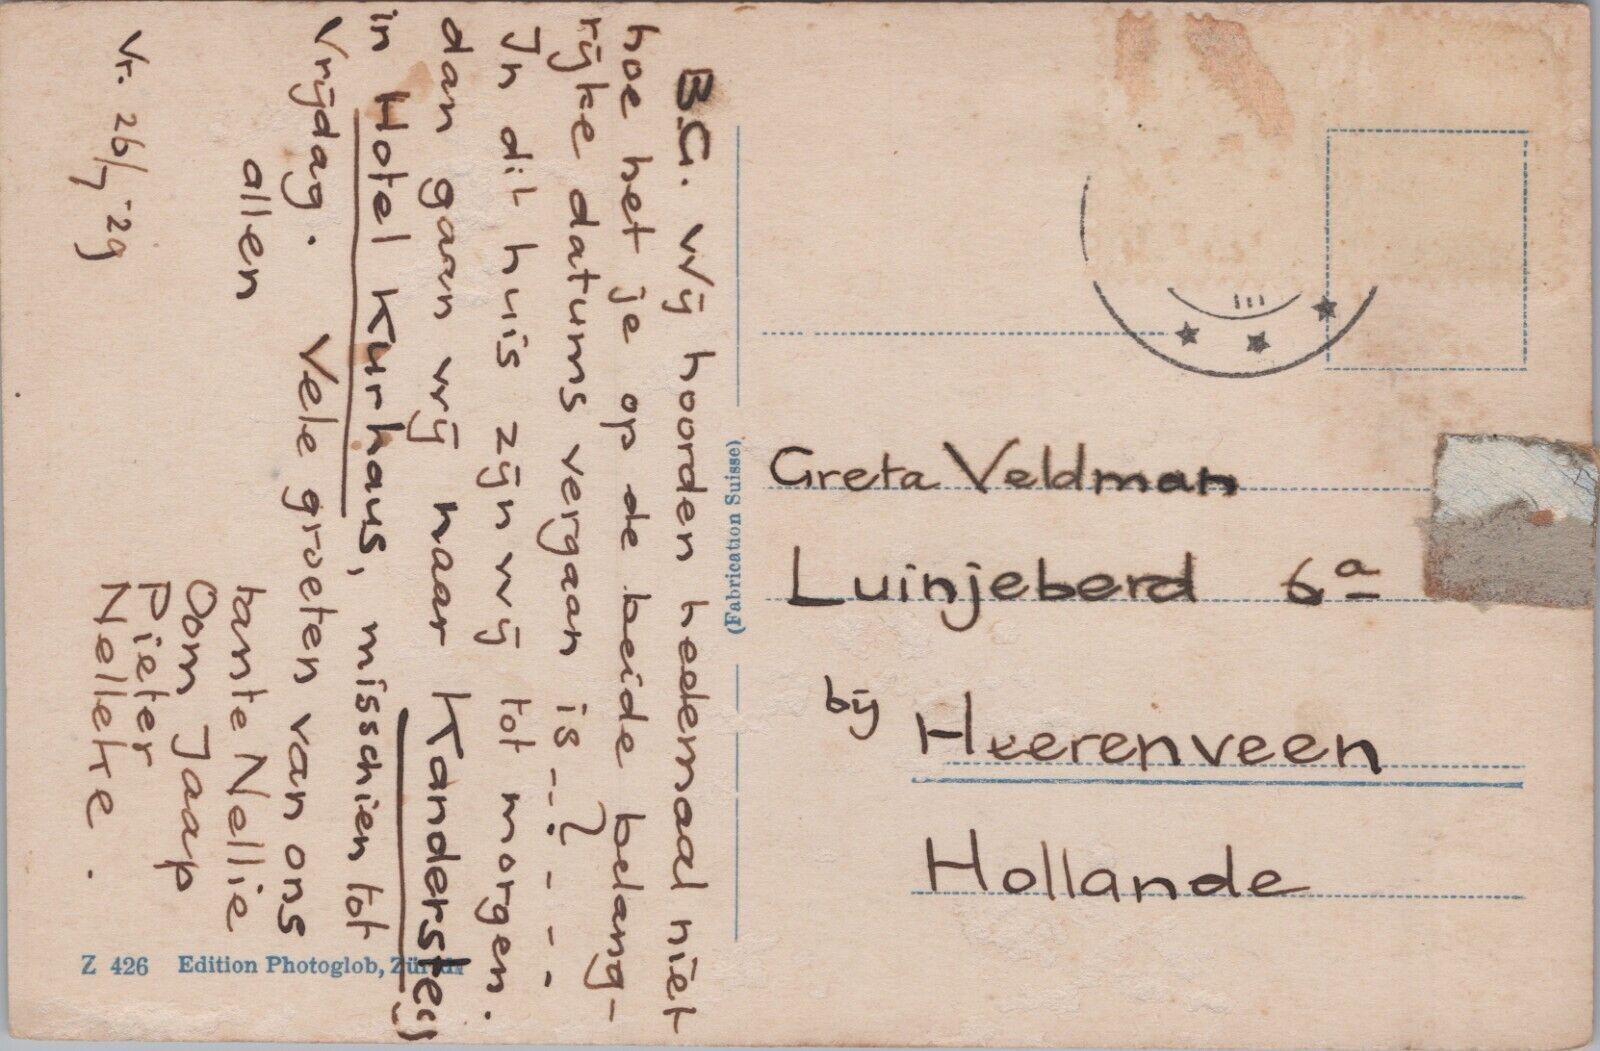 B.G. Wij hoorden heelemaal niet
hoe het je op de beide belang-
rijke datums vergaan is --?----
In dit huis zijn wij tot morgen.
dan gaan wij naar Kandersteg
in Hotel Kurhaus, misschien tot
Vrijdag. Vele groeten van ons
allen
tante Nellie
Oom Jaap
Pieter
Nelleke.
Vr. 26/7 -29
Z 426 Edition Photoglob, Zürich
(Fabrication Suisse)
Greta Veldman
Luinjeberd 6a
bij Heerenveen
Hollande